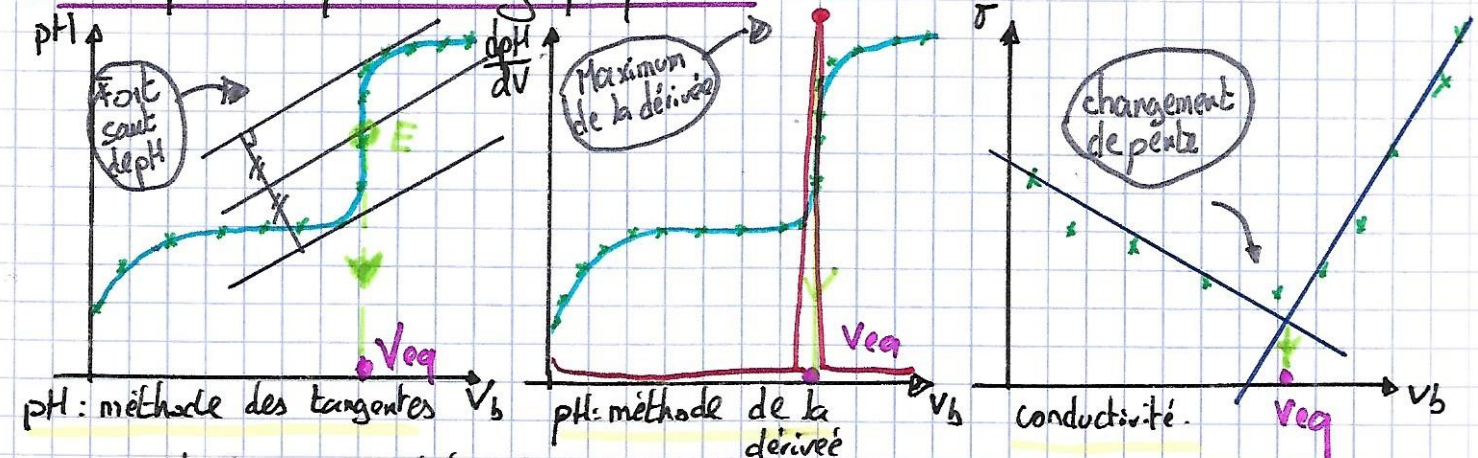 pH
Fort
saut
de pH
E
Veq
Vb
pH : méthode des tangentes
dpH
dV
Maximum
de la dérivée
Veq
Vb
pH : méthode de la
dérivée
σ
changement
de pente
Veq
Vb
conductivité.